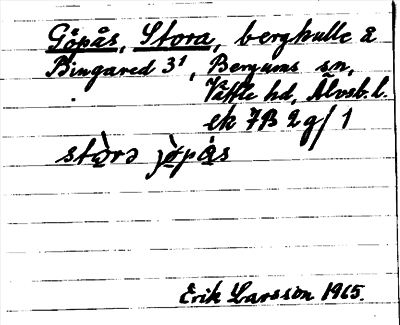 Göpås, Stora, bergkulle å
Bingared 3¹, Bergums sn,
Vättle hd, Älvsb. l.
ek 7B 2 g/1
stὼrə jö̀pås
Erik Larsson 1965.